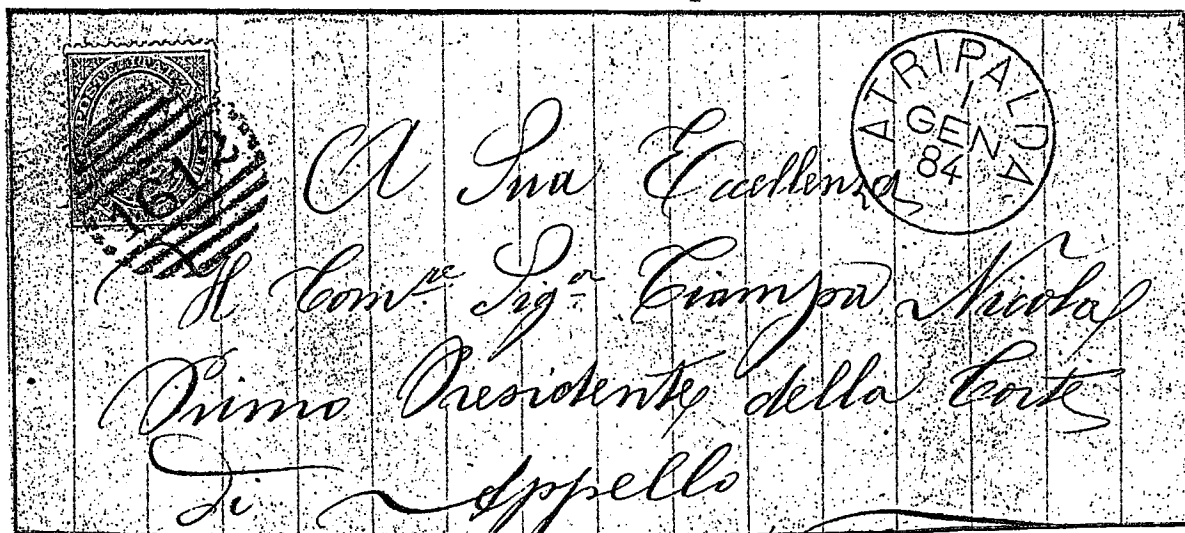 ATRIPALDA
1
GEN
84
A Sua Eccellenza
Il Com.re Sig.r Ciampa Nicola
Primo Presidente della Corte
Di Appello